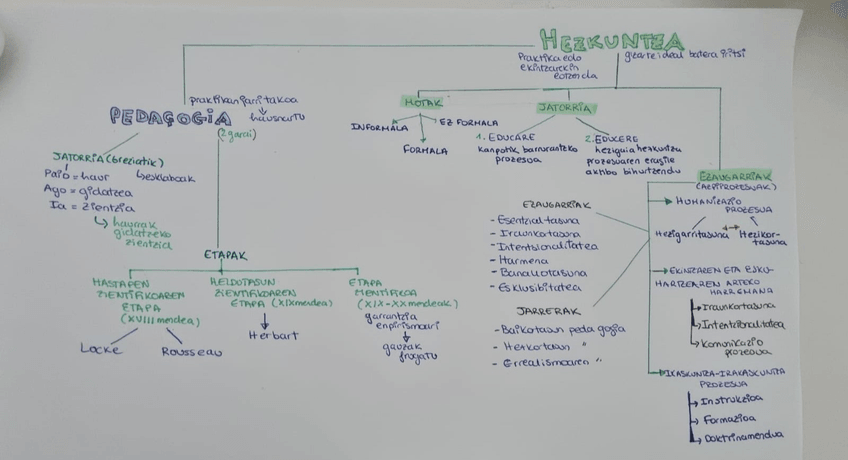 HEZKUNTZA
Praktika edo
ekintzarekin
gizarte ideal batera iritsi
PEDAGOGIA
praktikan jarritakoa
hausnartu
(2 garai)
JATORRIA (breziatik)
Paido = haur
esklaboak
Ago = gidatzea
Ia = zientzia
haurrak
gidatzeko
zientzia
ETAPAK
HASTAPEN
ZIENTIFIKOAREN
ETAPA
(XVIII mendea)
Locke
Rousseau
HELDUTASUN
ZIENTIFIKOAREN
ETAPA (XIX mendea)
Herbart
ETAPA
ZIENTIFIKOA
(XIX-XX mendeak)
garrantzia
enpirismoari
gauzak
frogatu
MOTAK
INFORMALA
FORMALA
EZ FORMALA
JATORRIA
1. EDUCARE
kanpotik barrurantzko
prozesua
2. EDUCERE
heziguia hezkuntza
prozesuaren eragile
aktibo bihurtzendu
EZAUGARRIAK
- Esentzialtasuna
- Iraunkortasuna
- Intentsionalitatea
- Harmena
- Banakotasuna
- Esklusibitatea
JARRERAK
- Baikortasun pedagogia
- Hezkortasun "
- Errealismoaren "
EZAUGARRIAK
(AZPIPROZESUAK)
HUMANIZAZIO
PROZESUA
Hezigarritasuna
Hezikor-
tasuna
EKINTZAREN ETA ESKU-
HARTZEAREN ARTEKO
HARREMANA
Iraunkortasuna
Intentzionalitatea
Komunikazio
prozesua
IKASKUNTZA-IRAKASKUNTZA
PROZESUA
Instrukzioa
Formazioa
Doktrinamendua